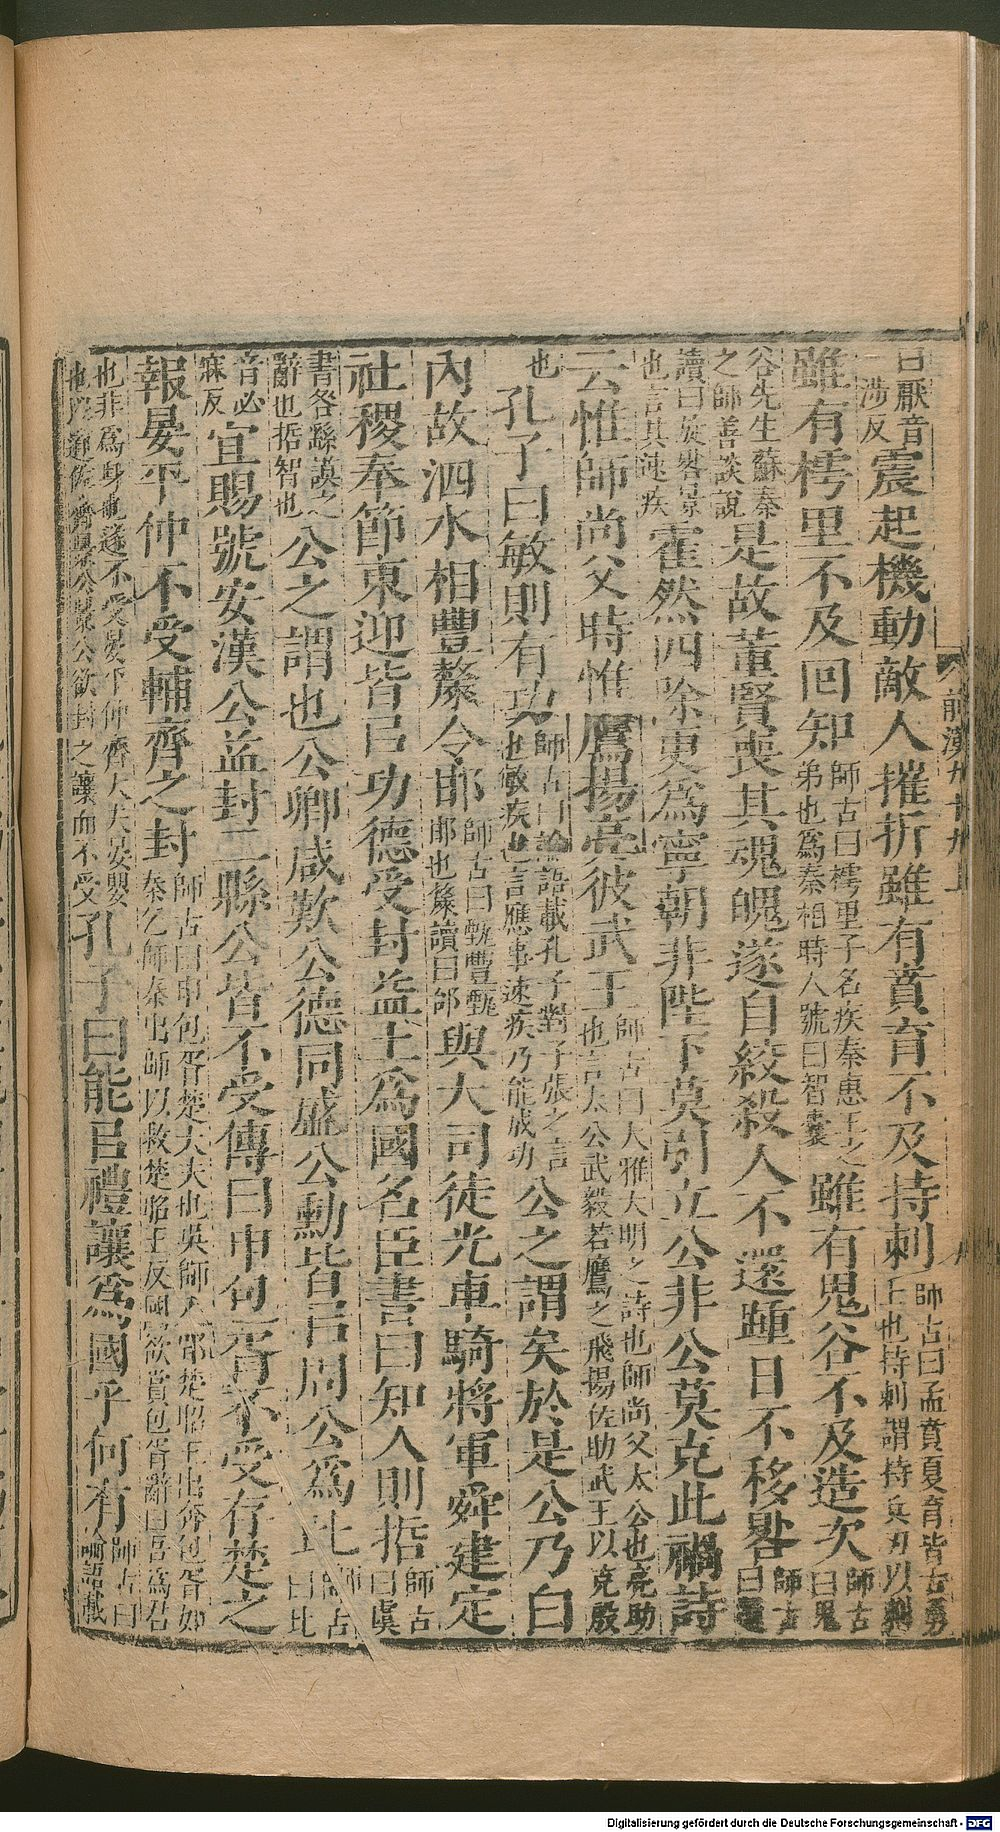 曰厭音涉反震起機動敵人摧折雖有賁育不及持刺師古曰孟賁夏育皆古勇士也持刺謂持兵刃以刺
雖有樗里不及回知師古曰樗里子名疾秦惠王之弟也爲秦相時人號曰智囊雖有鬼谷不及造次師古曰鬼
谷先生蘇秦之師善談說是故董賢喪其魂魄遂自絞殺人不還踵日不移晷師古曰還
讀曰旋晷景也言其速疾霍然四除更爲寧朝非陛下莫引立公非公莫克此禍詩
云惟師尚父時惟鷹揚亮彼武王師古曰大雅大明之詩也師尚父太公也亮助也言太公武毅若鷹之飛揚佐助武王以克殷
也孔子曰敏則有功師古曰論語載孔子對子張之言也敏疾也言應事速疾乃能成功公之謂矣於是公乃白
內故泗水相豐斄令邯師古曰甄豐甄邯也斄讀曰邰與大司徒光車騎將軍舜建定
社稷奉節東迎皆㠯功德受封益土爲國名臣書曰知人則悊師古曰虞
書咎繇謨之辭也悊智也公之謂也公卿咸歎公德同盛公勳皆㠯周公爲比師古曰比
音必寐反宜賜號安漢公益封二縣公皆不受傳曰申包胥不受存楚之
報晏平仲不受輔齊之封師古曰申包胥楚大夫也吳師入郢楚昭王出奔包胥如秦乞師秦出師以救楚昭王反國欲賞包胥辭曰吾爲君
也非爲身也遂不受晏平仲齊大夫晏嬰也以道佐齊景公景公欲封之讓而不受孔子曰能㠯禮讓爲國乎何有師古曰論語載
前漢九十九上
Digitalisierung gefördert durch die Deutsche Forschungsgemeinschaft - DFG